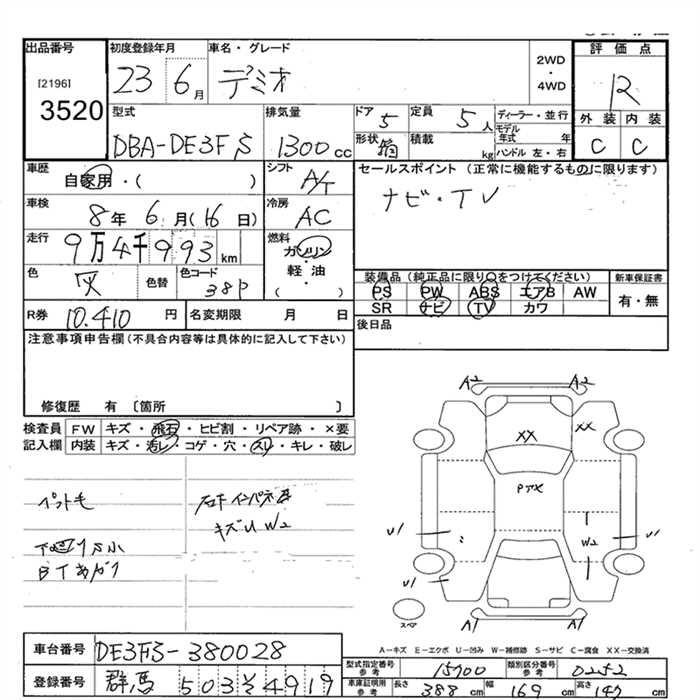 出品番号 初度登録年月 車名・グレード 評価点
[2196] 23 6月 デミオ 2WD・4WD R
3520
型式 排気量 ドア 5 定員 5人 ディーラー・並行 外装 内装
DBA-DE3FS 1300cc 形状 積載 kg モデル年式 年 C C
ハンドル 左・右
車歴 自家用・( ) シフト A/T セールスポイント (正常に機能するものに限ります)
車検 8年 6月(16日) 冷房 AC ナビ・TV
走行 9万4千993km 燃料 ガソリン・軽油・( )
色 灰 色替 色コード 38P 装備品 (純正品に限り○をつけてください) 新車保証書
PS PW ABS エアB AW 有・無
SR ナビ TV カワ
R券 10,410円 名変期限 月 日 後日品
注意事項申告欄(不具合内容等は具体的に記入して下さい)
修復歴 有 〔箇所 〕
検査員 FW キズ・飛石・ヒビ割・リペア跡・×要
記入欄 内装 キズ・汚レ・コゲ・穴・スレ・キレ・破レ
ペット毛
キズU W2
A2 A2
XX XX
PアX
U1 W2 U1
U1
A1 A1
スペア
A-キズ E-エクボ U-凹み W-補修跡 S-サビ C-腐食 XX-交換済
車台番号 DE3FS-380028
型式指定番号 参考 15700 類別区分番号 参考 0252
登録番号 群馬 503 そ 4919
車庫証明用 参考 長さ 388cm 幅 169cm 高さ 147cm